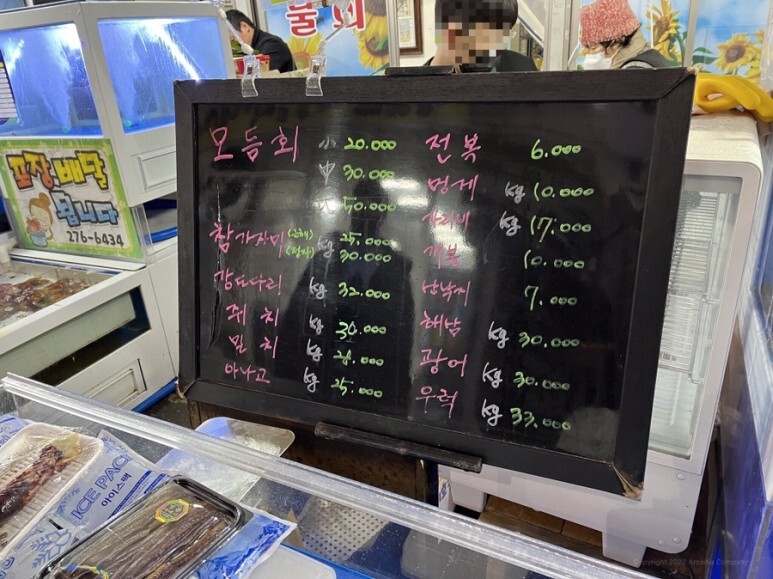 물회
포장 배달
됩니다
276-6434
모듬회 小 20.000
中 30.000
大 50.000
참가자미 kg 25.000
30.000
강도다리 kg 32.000
쥐치 kg 30.000
밀치 kg
아나고 kg 25.000
전복 6.000
멍게 kg 10.000
가리비 kg 17.000
개불 10.000
산낙지 7.000
해삼 kg 30.000
광어 kg 30.000
우럭 kg 33.000
ICE PACK
아이스팩